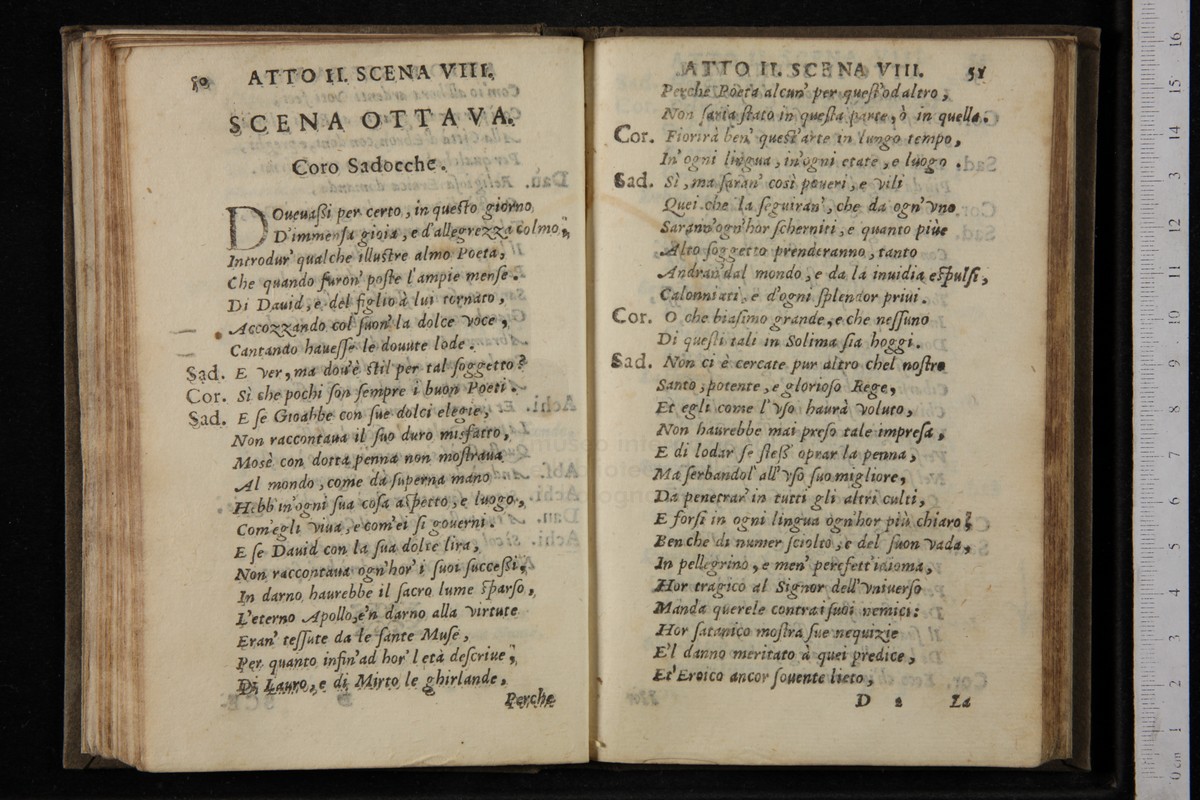 50 ATTO II. SCENA VIII.
SCENA OTTAVA.
Coro Sadocche.
DOueuaſsi per certo, in queſto giorno
D'immenſa gioia, e d'allegrezza colmo,
Introdur' qualche illuſtre almo Poeta,
Che quando furon' poſte l'ampie menſe.
Di Dauid, e del figlio à lui tornato,
Accozzando col' ſuon' la dolce voce,
Cantando haueſſe le douute lode.
Sad. E ver, ma dou'è ſtil per tal ſoggetto?
Cor. Sì che pochi ſon ſempre i buon Poeti.
Sad. E ſe Gioabbe con ſue dolci elegie,
Non raccontaua il ſuo duro misfatto,
Mosè con dotta penna non moſtraua
Al mondo, come dà ſuperna mano
Hebb' in'ogni ſua coſa aſpetto, e luogo,
Com'egli viua, e com'ei ſi gouerni.
E ſe Dauid con la ſua dolce lira,
Non raccontaua ogn'hor' i ſuoi ſucceſsi,
In darno haurebbe il ſacro lume ſparſo,
L'eterno Apollo, e'n darno alla virtute
Eran' teſſute da le ſante Muſe,
Per quanto infin'ad hor' l età deſcriue,
Di Lauro, e di Mirto le ghirlande,
Perche
ATTO II. SCENA VIII. 51
Perche Poeta alcun' per queſt'od altro,
Non ſaria ſtato in queſta parte, ò in quella.
Cor. Fiorirà ben' queſt'arte in lungo tempo,
In' ogni lingua, in'ogni etate, e luogo.
Sad. Sì, ma ſaran' così poueri, e vili
Quei che la ſeguiran', che da ogn' vno
Sarann' ogn'hor ſcherniti, e quanto piùe
Alto ſoggetto prenderanno, tanto
Andran' dal mondo, e da la inuidia eſpulſi,
Calonniati, e d'ogni ſplendor priui.
Cor. O che biaſimo grande, e che neſſuno
Di queſti tali in Solima ſia hoggi.
Sad. Non ci è cercate pur altro chel noſtro
Santo, potente, e glorioſo Rege,
Et egli come l'vſo haurà voluto,
Non haurebbe mai preſo tale impreſa,
E di lodar ſe ſteſs' oprar la penna,
Ma ſerbandol' all'vſo ſuo migliore,
Da penetrar' in tutti gli altri culti,
E forſi in ogni lingua ogn'hor più chiaro?
Ben che di numer ſciolto, e del ſuon vada,
In pellegrino, e men' perfett' idioma,
Hor tragico al Signor dell'vniuerſo
Manda querele contra i ſuoi nemici:
Hor ſatanico moſtra ſue nequizie
E'l danno meritato à quei predice,
Et' Eroico ancor ſouente lieto,
D 2 La